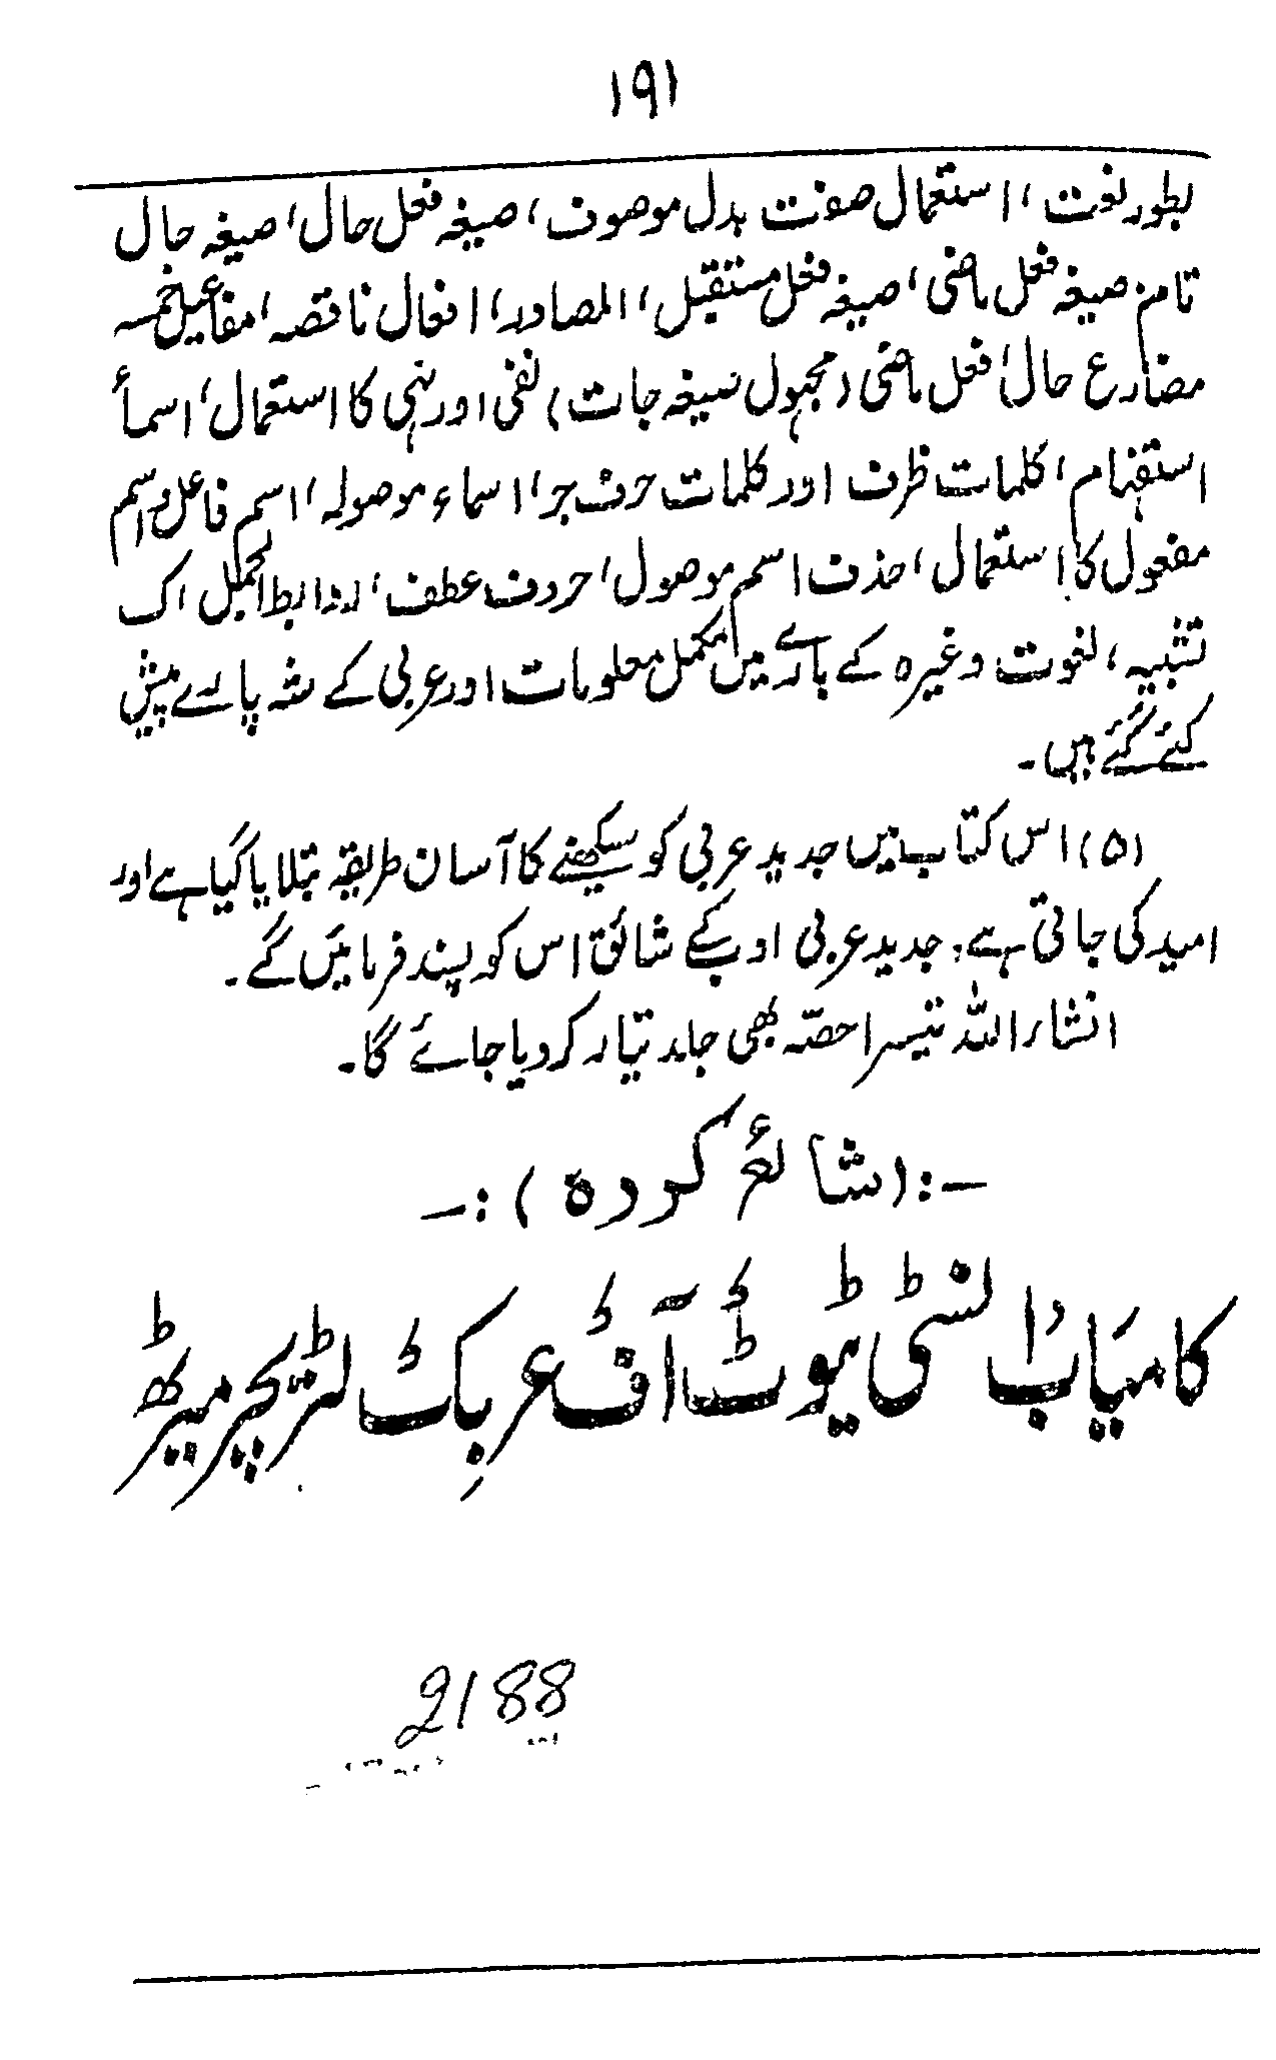 ۱۹۱
بطور نعت، استعمال صفت بدل موصوف، صیغہ فعل حال، صیغہ حال
تام، صیغہ فعل ماضی، صیغہ فعل مستقبل، المصادر، افعال ناقصہ، مفاعیل خمسہ
مضارع حال، فعل ماضی (مجہول صیغہ جات) نفی اور نہی کا استعمال، اسمأ
استفہام، کلمات ظرف اور کلمات حرف جر، اسماء موصولہ، اسم فاعل و اسم
مفعول کا استعمال، حذف اسم موصول، حروف عطف، روابط الجمل، ک
تشبیہ، نعوت وغیرہ کے بارے میں مکمل معلومات اور عربی کے شہ پارے پیش
کئے گئے ہیں۔
(۵) اس کتاب میں جدید عربی کو سیکھنے کا آسان طریقہ بتلایا گیا ہے اور
امید کی جاتی ہے، جدید عربی ادب کے شائق اس کو پسند فرمائیں گے۔
انشاء اللہ تیسرا حصّہ بھی جلد تیار کر دیا جائے گا۔
-:(شائع کردہ):-
کامیاب انسٹی ٹیوٹ آف عربک لٹریچر میرٹھ
2188